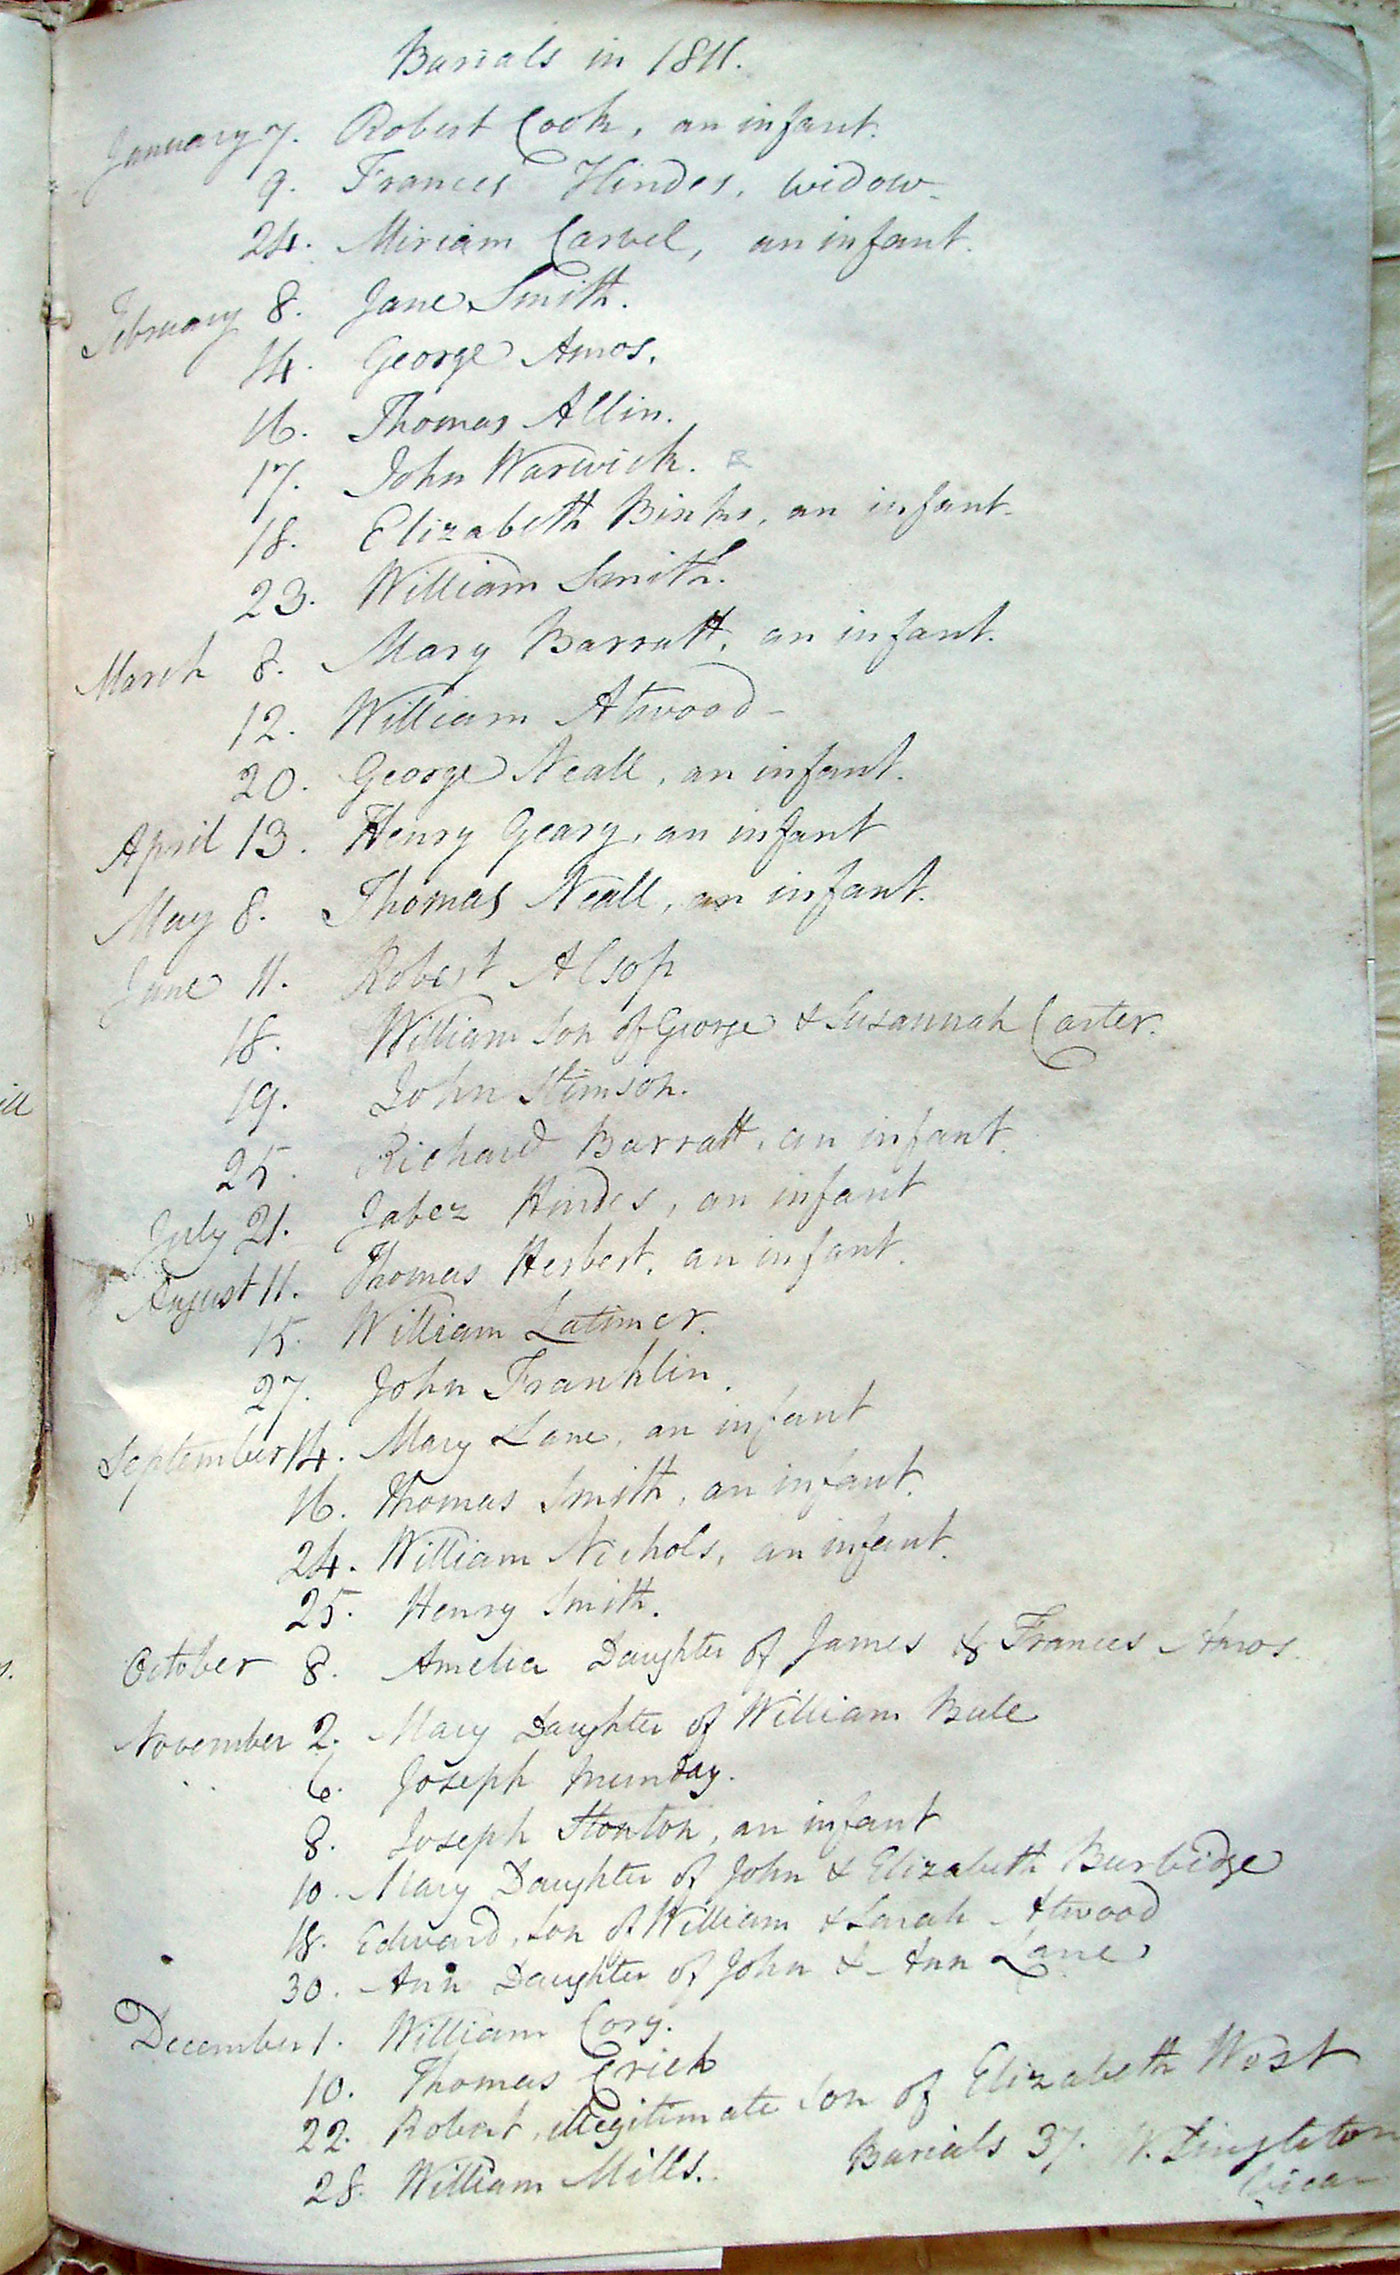 Burials in 1811.
January 7. Robert Cook, an infant.
9. Frances Hindes, widow
24. Miriam Carvel, an infant.
February 8. Jane Smith.
14. George Amos.
16. Thomas Allin.
17. John Warwick.
18. Elizabeth Binks, an infant.
23. William Smith.
March 8. Mary Barratt, an infant.
12. William Atwood
20. George Neall, an infant.
April 13. Henry Geary, an infant
May 8. Thomas Neall, an infant.
June 11. Robert Alsop
18. William Son of George & Susannah Carter.
19. John Stimson.
25. Richard Barratt, an infant.
July 21. Jabez Hindes, an infant
August 11. Thomas Herbert, an infant.
15. William Latimer.
27. John Franklin.
September 14. Mary Lane, an infant
16. Thomas Smith, an infant.
24. William Nichols, an infant.
25. Henry Smith.
October 8. Amelia Daughter of James & Frances Amos.
November 2. Mary Daughter of William Bule
6. Joseph Munday.
8. Joseph Stonton, an infant
10. Mary Daughter of John & Elizabeth Burbidge
18. Edward, Son of William & Sarah Atwood
30. Ann Daughter of John & Ann Lane
December 1. William Cory.
10. Thomas Crick
22. Robert, illegitimate Son of Elizabeth West
28. William Mills.
Burials 37. W. Singleton
Vicar